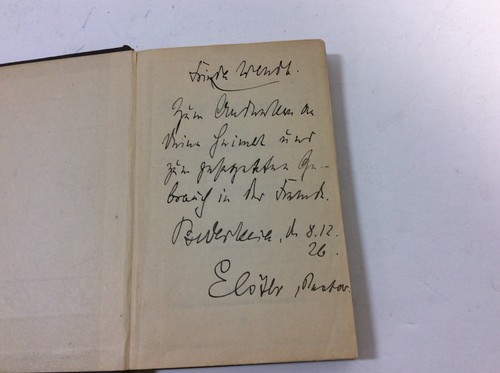 Frieda Wendt.
Zum Andenken an
deine Heimat und
zum gesegneten Ge-
brauch in der Fremde.
d. 8.12.
26.
Pastor.